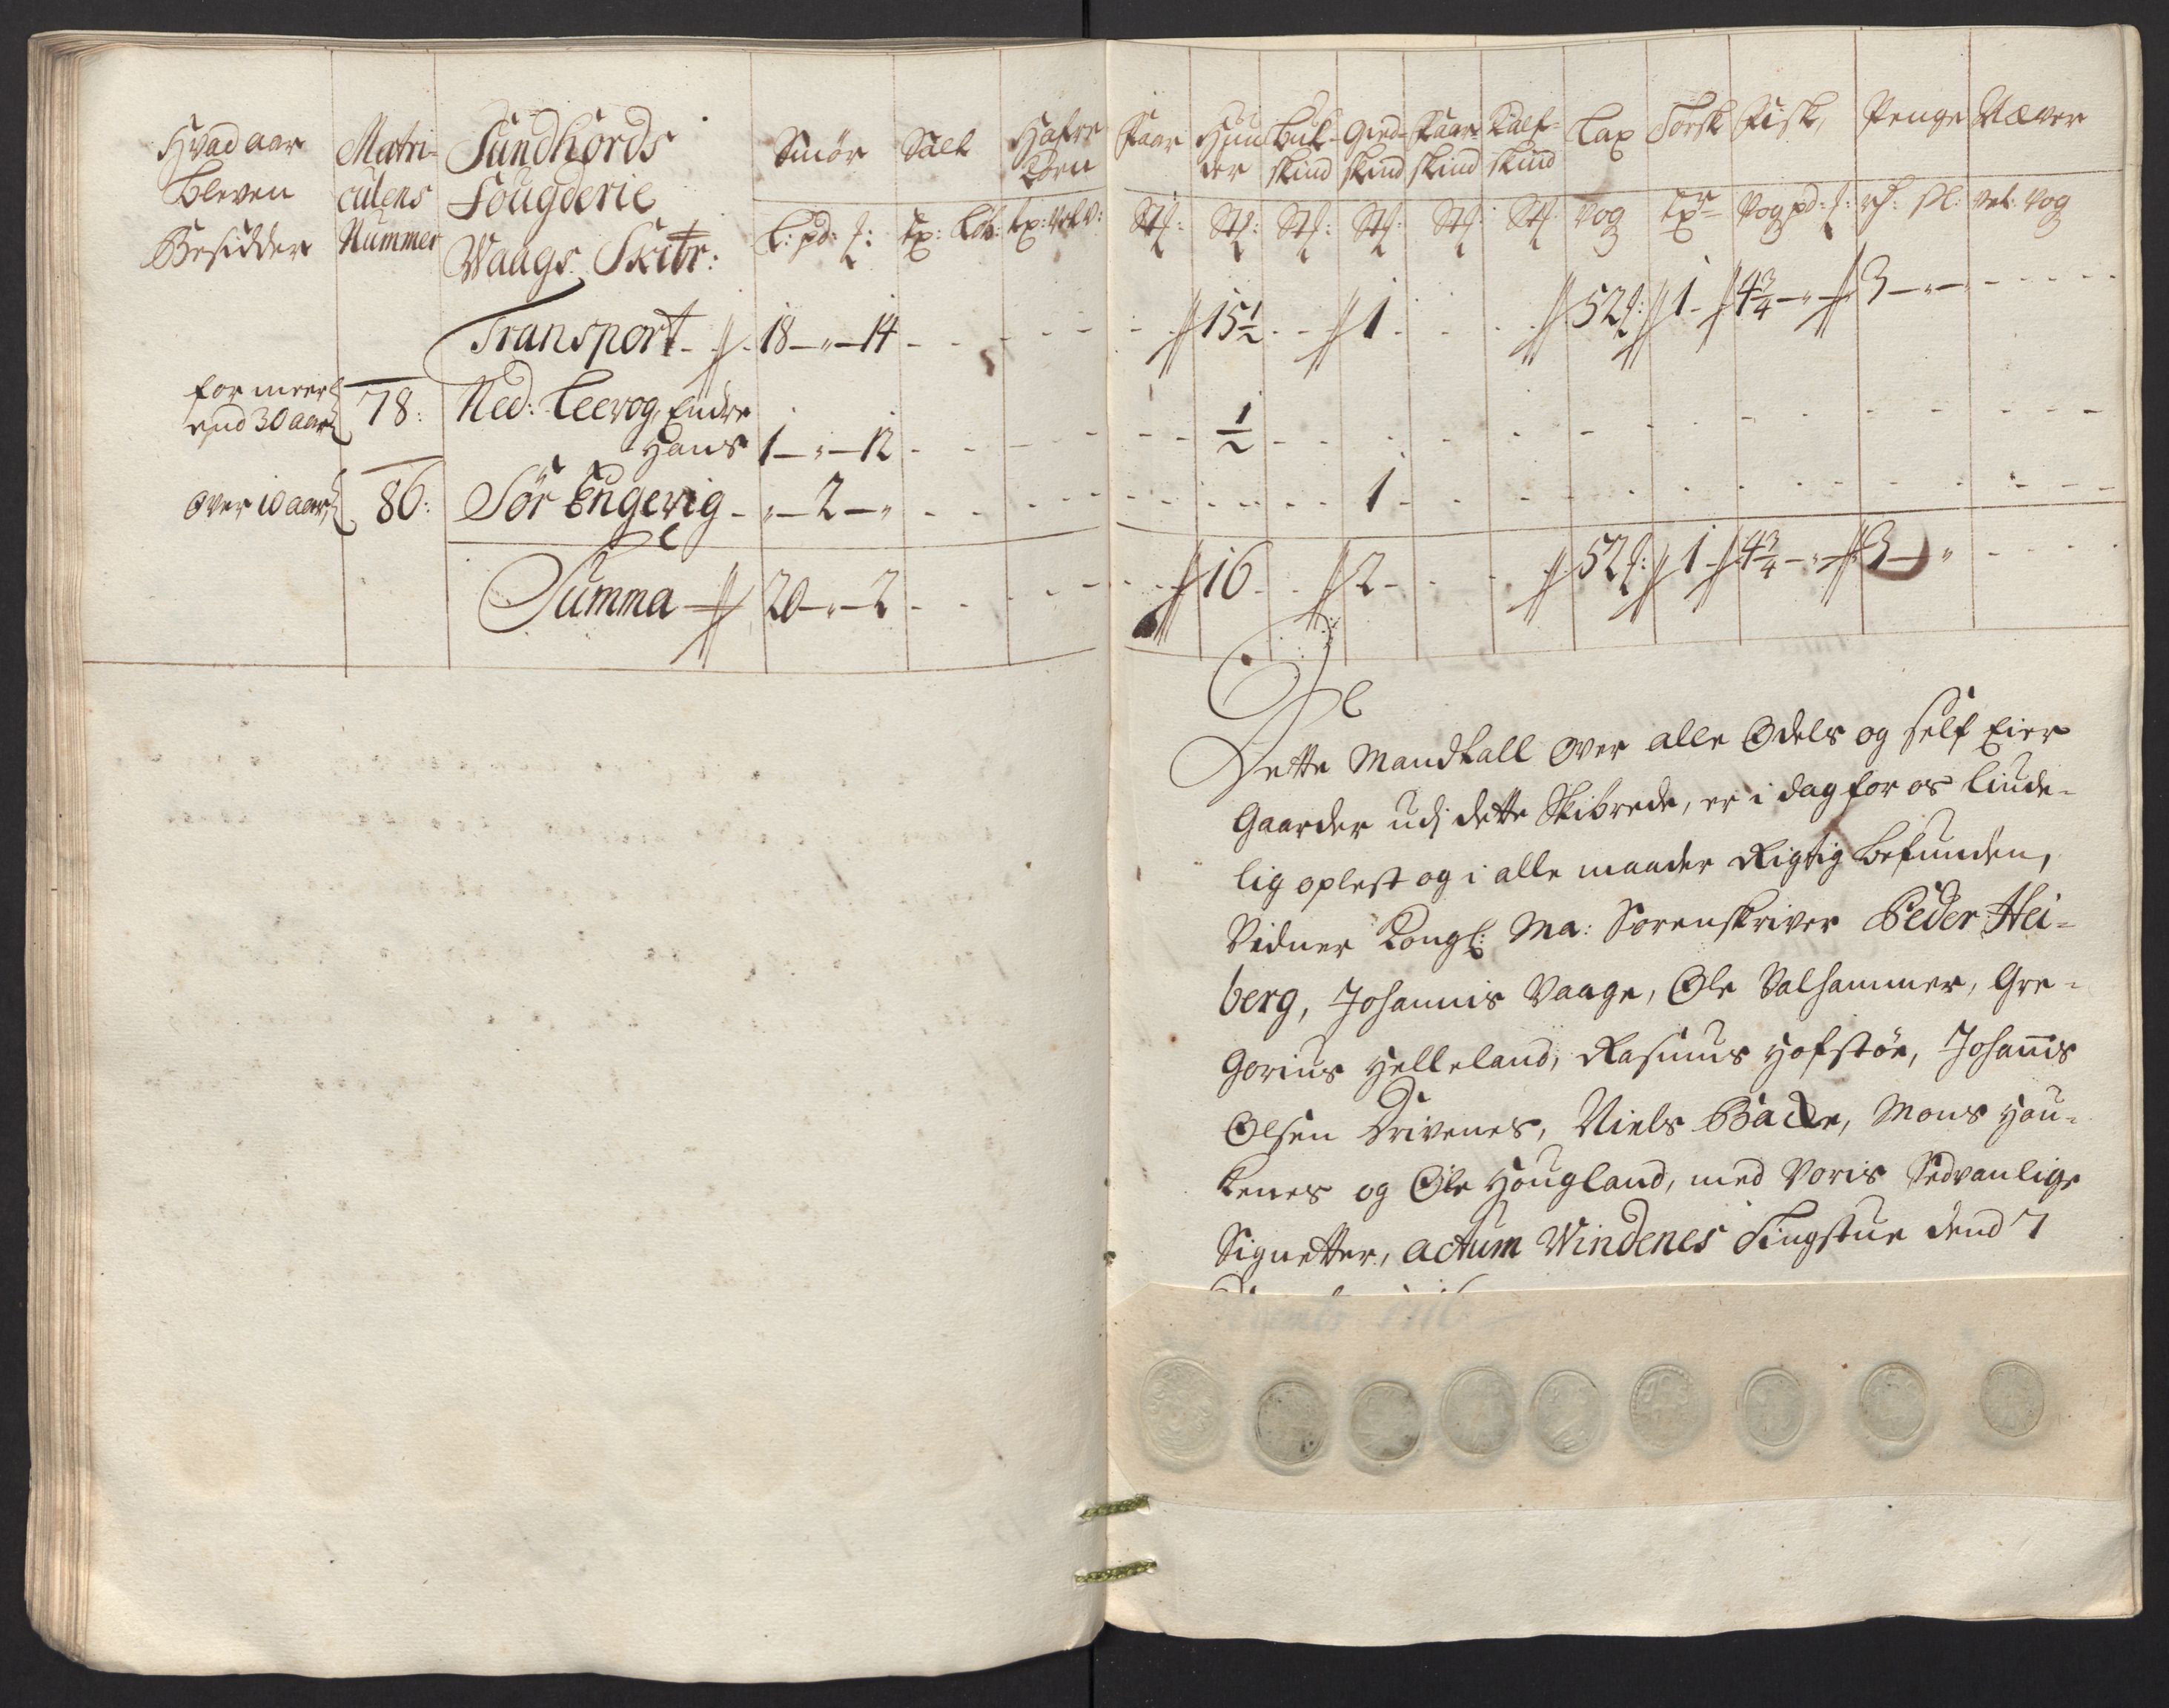 Hvad aar Bleven Besidder
Matriculens Nummer
Sundhords Fougderie Waags Skibr:
Smør
Salt
Hafre Korn
Faar
Huuder
Buk-skind
Gied-skind
Faar-skind
Kalf-skind
Lax
Torsk
Fisk
Penge
Næver
Transport 18 - " - 14 15½ 1 52 1 4¾ - " 3 - " -
for meer end 30 aar 78: Ned: Leevog, Endre
Hans 1 - " - 12 ½
over 10 aar 86: Sør Engevig - " - 2 - " 1
Summa 20 - " - 2 16 2 52 1 4¾ - " 3 - "
Dette Mandtall over alle Odels og self Eier
Gaarder udj dette Skibrede, er i dag for os liude-
lig oplest og i alle maader Rigtig befunden,
Vidner Kongl: Ma: Sorenskriver Peder Hei-
berg, Johannis Vaage, Ole Valhammer, Gre-
gorius Helleland, Rasmus Hofstøe, Johanis
Olsen Drivenes, Niels Backe, Mons Hou-
kenes og Ole Hougland, med voris Sedvanlige
Signetter, actum Windenes Tingstue dend 7